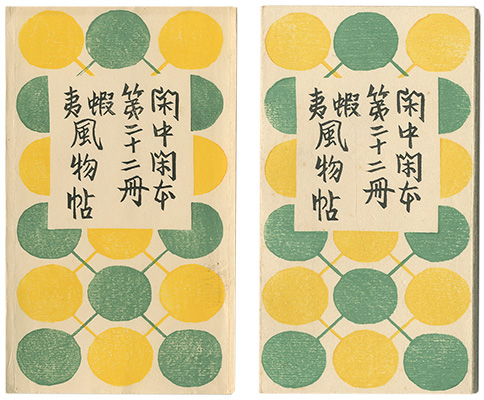 閑中閑本
第二十二冊
蝦夷風物帖
閑中閑本
第二十二冊
蝦夷風物帖